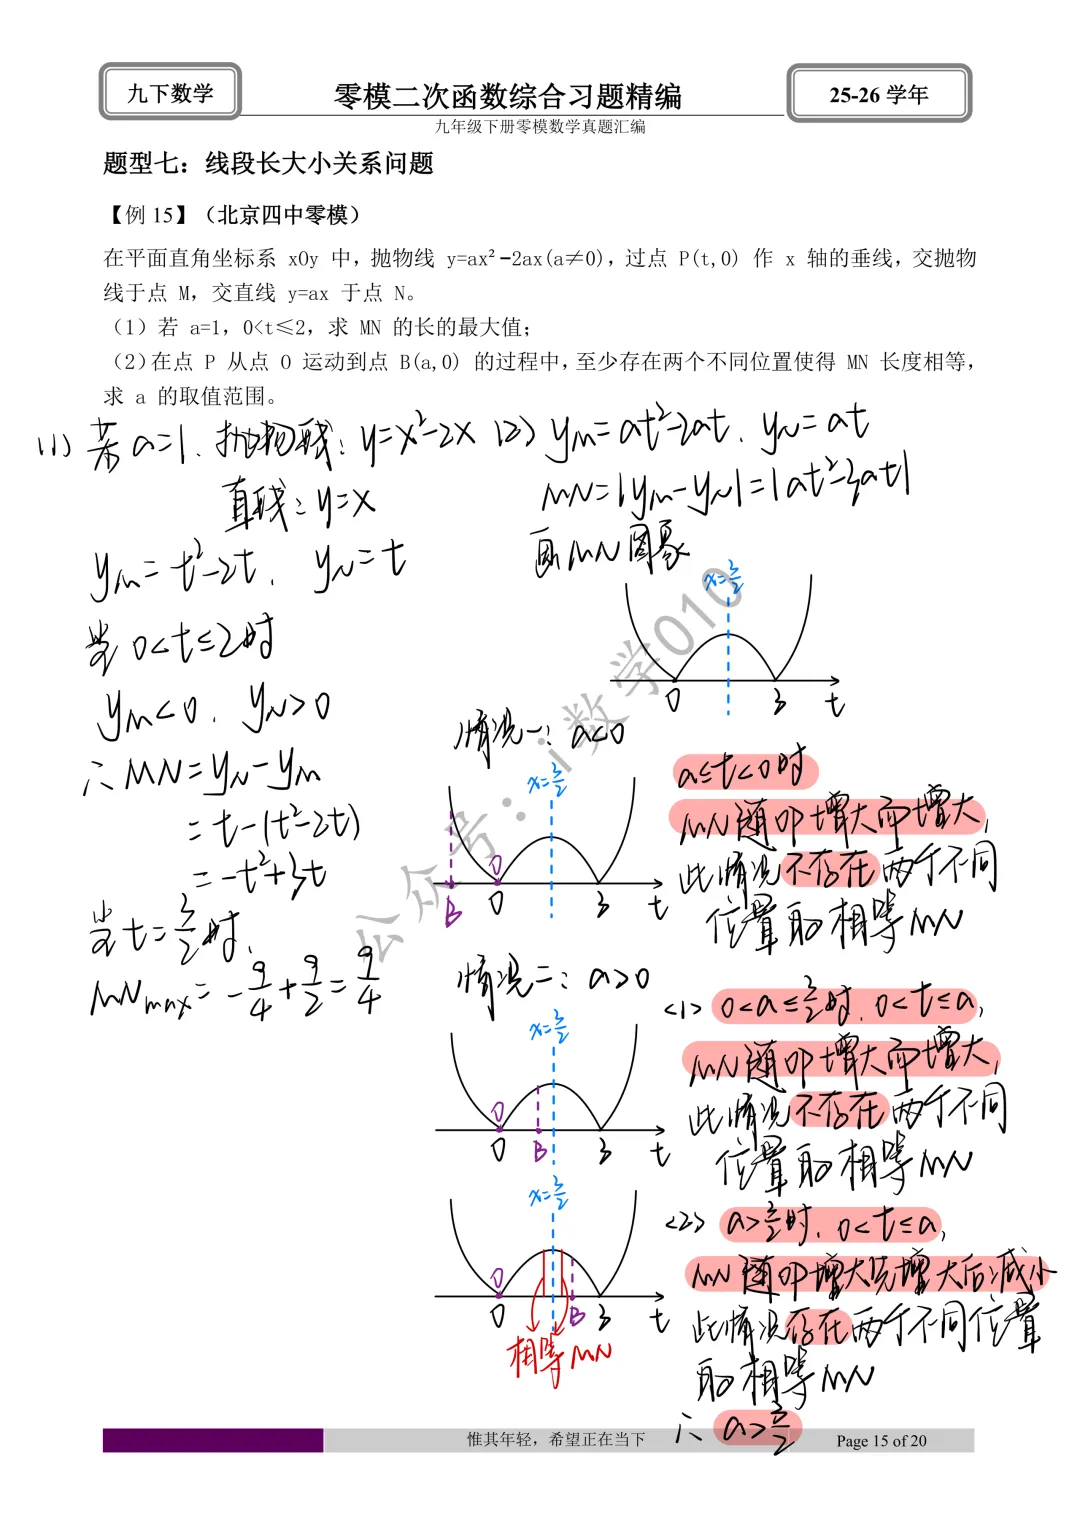 九下数学
零模二次函数综合习题精编
25-26 学年
九年级下册零模数学真题汇编
题型七：线段长大小关系问题
【例 15】（北京四中零模）
在平面直角坐标系 xOy 中，抛物线 y=ax²-2ax(a≠0)，过点 P(t,0) 作 x 轴的垂线，交抛物
线于点 M，交直线 y=ax 于点 N。
（1）若 a=1，0<t≤2，求 MN 的长的最大值；
（2）在点 P 从点 O 运动到点 B(a,0) 的过程中，至少存在两个不同位置使得 MN 长度相等，
求 a 的取值范围。
(1) 若 a=1、抛物线：y=x²-2x
直线：y=x
yM=t²-2t、yN=t
当 0<t≤2时
yM<0、yN>0
∴ MN=yN-yM
=t-(t²-2t)
=-t²+3t
当 t=3/2时、
MNmax=-9/4+9/2=9/4
(2) yM=at²-2at、yN=at
MN=|yM-yN|=|at²-3at|
画MN图象
x=3/2
0 3 t
情况一：a<0
x=3/2
O
B 0 3 t
a≤t<0时
MN随OP增大而增大，
此情况不存在两个不同
位置取相等MN
情况二：a>0
x=3/2
O
0 B 3 t
<1> 0<a≤3/2时、0<t≤a，
MN随OP增大而增大，
此情况不存在两个不同
位置取相等MN
x=3/2
O
0 B 3 t
相等MN
<2> a>3/2时、0<t≤a，
MN随OP增大先增大后减小
此情况存在两个不同位置
取相等MN
∴ a>3/2
公众号：i数学010
惟其年轻，希望正在当下
Page 15 of 20